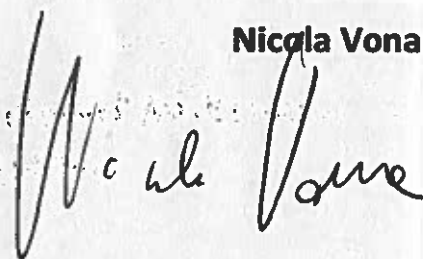 Nicola Vona
Nicola Vona